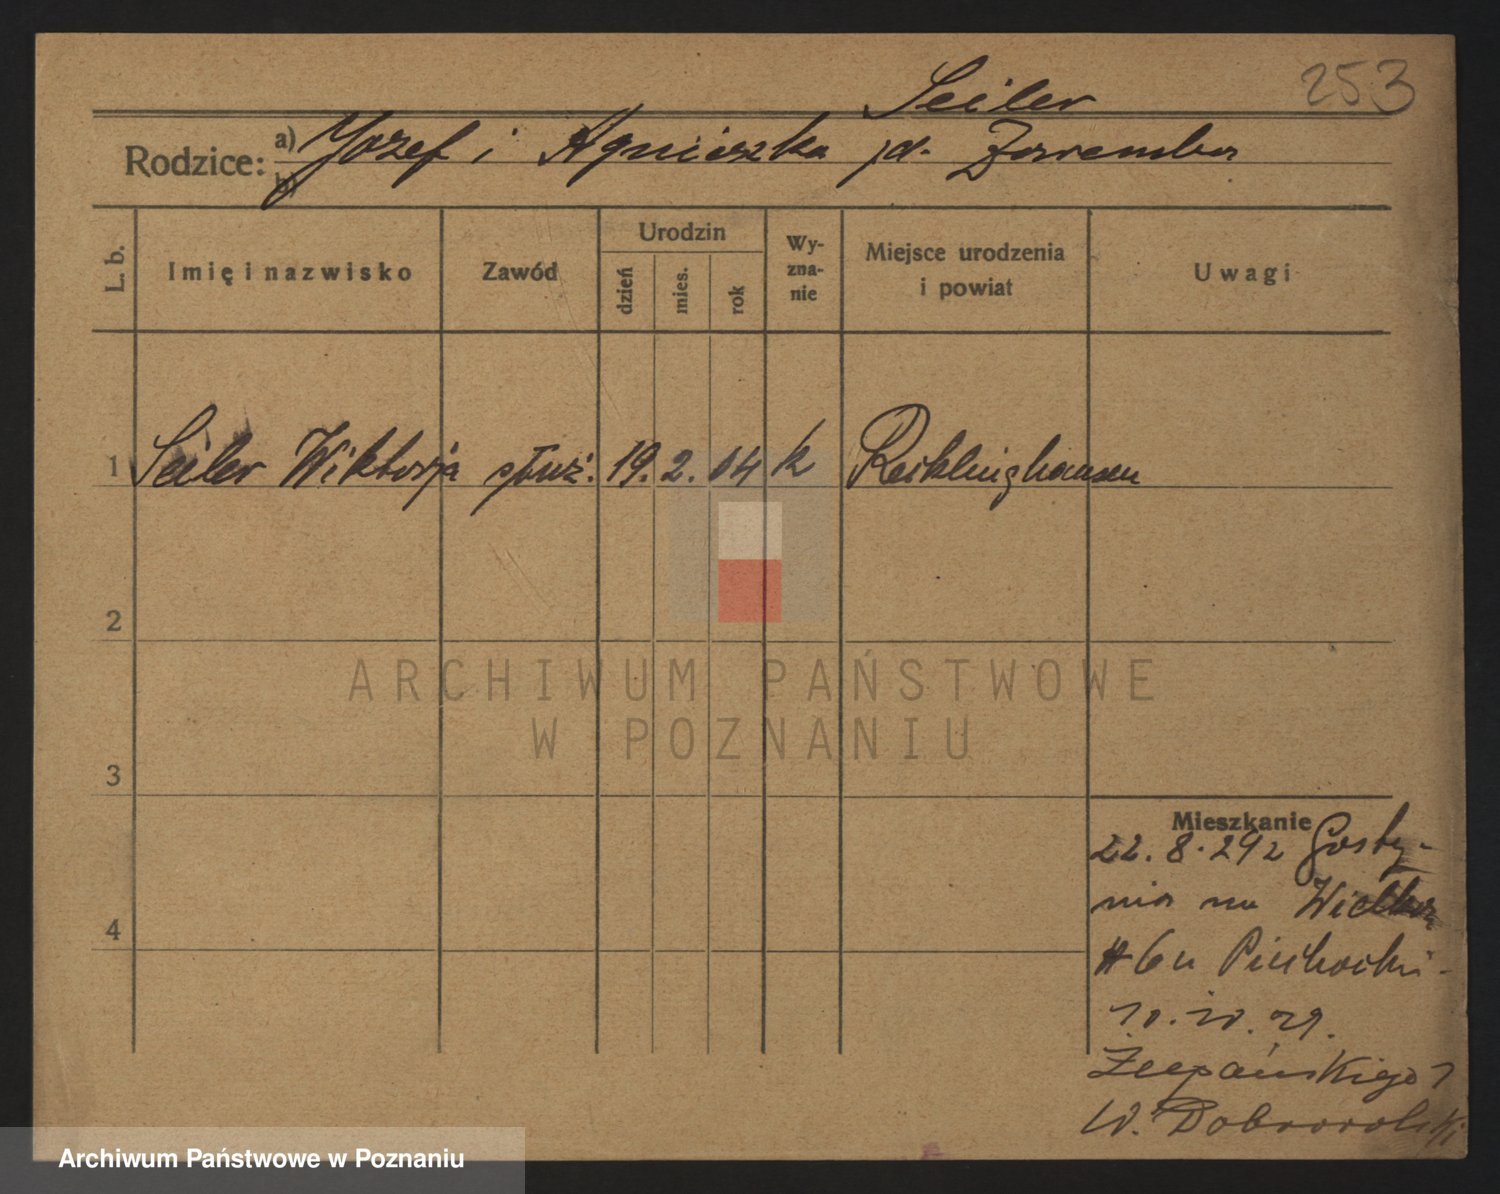 253
Seiler
Rodzice: a) Józef i Agnieszka pd. Zaremba
b)
L. b. Imię i nazwisko Zawód Urodzin dzień mies. rok Wyznanie Miejsce urodzenia i powiat Uwagi
1 Seiler Wiktorja służ. 19. 2. 04 k Recklinghausen
2
3
4
Mieszkanie
22. 8. 29 z Gosty-
nia na Wielka
6 u Piechocki-
10. 10. 29.
W. Dobrowolski
ARCHIWUM PAŃSTWOWE
W POZNANIU
Archiwum Państwowe w Poznaniu